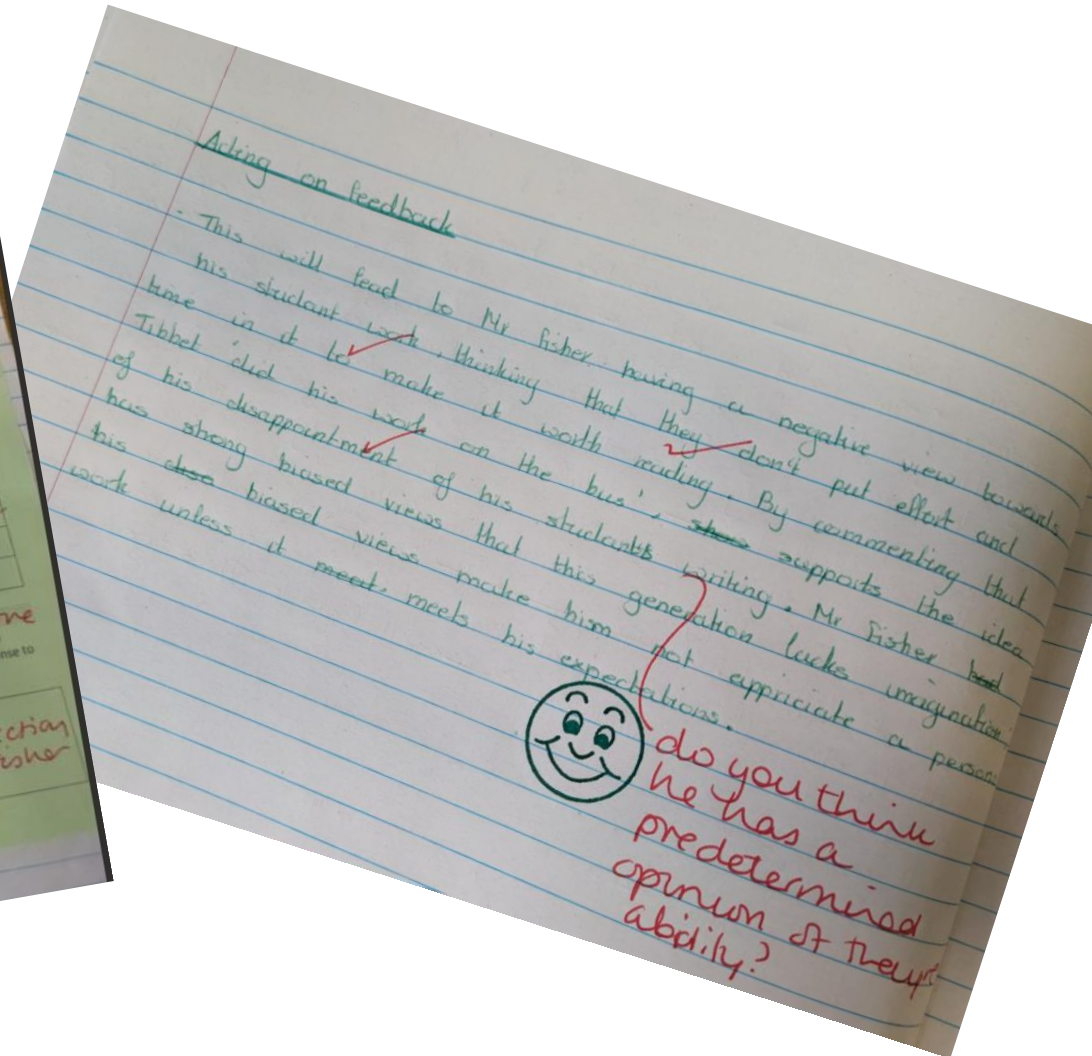 Acting on feedback
- This will lead to Mr fisher having a negative view towards
his student work, thinking that they don't put effort and
time in it to make it worth reading. By commenting that
Tibbet 'did his work on the bus', supports the idea
of his disappointment of his students writing. Mr fisher
has strong biased views that this generation lacks imagination
his biased views make hism not appriciate a person
work unless it meet, meets his expectations.
do you think
he has a
predetermined
opinion of they're
ability?
me
nse to
ction
isher